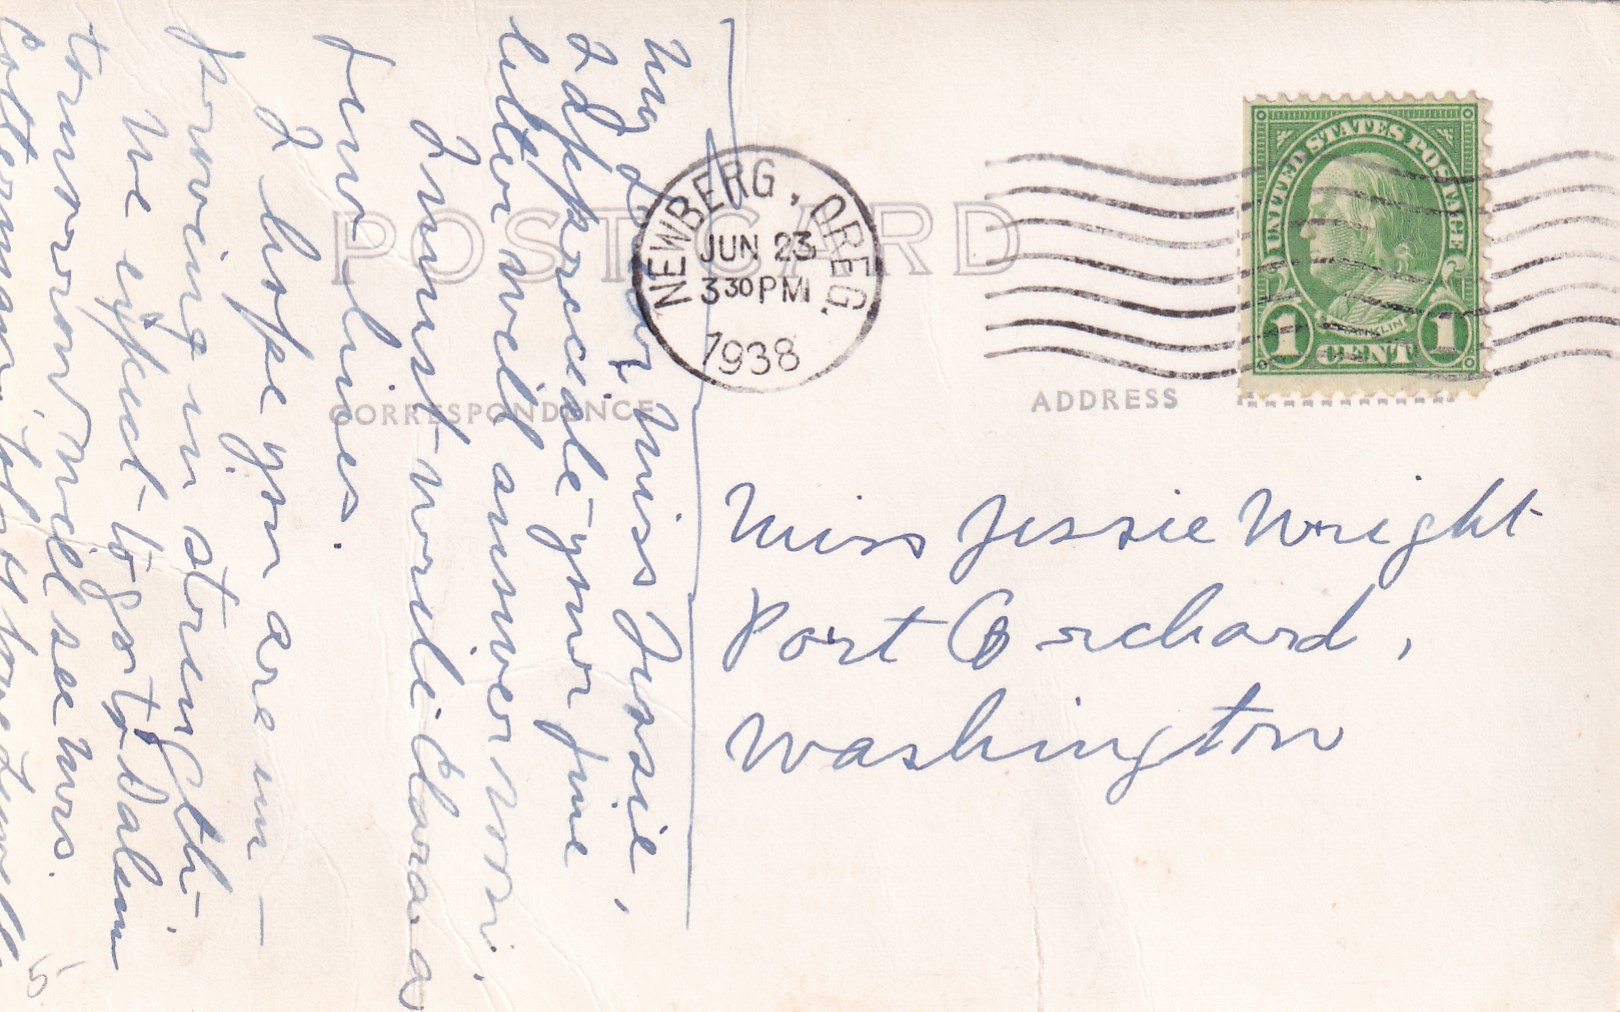 My dear Miss Jessie,
I appreciate your fine
letter will answer soon.
I must write Clara a
few lines.
I hope you are im-
proving in strength.
We expect to go to Salem
tomorrow. Will see Mrs.
POST CARD
CORRESPONDENCE
ADDRESS
NEWBERG, OREG.
JUN 23
3 30 PM
1938
UNITED STATES POSTAGE
FRANKLIN
1 CENT 1
Miss Jessie Wright
Port Orchard,
Washington
5-